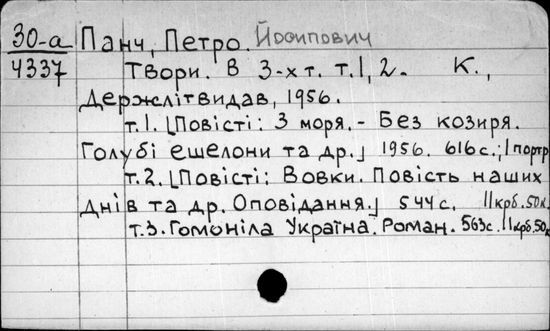 30-а Панч, Петро. Йосипович
4337 Твори. В 3-х т. т.1, 2. К.,
Держлітвидав, 1956.
т.1. [Повісті: З моря. - Без козиря.
Голубі ешелони та др.] 1956. 616 с.; 1 портр
т.2. [Повісті: Вовки. Повість наших
днів та др. Оповідання.] 544 с. 11 крб. 50 к.
т.3. Гомоніла Україна. Роман. 563 с. 11 крб. 50 к